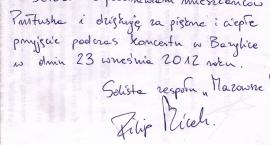 mieszkańców
Pułtuska i dziękuję za piękne i ciepłe
przyjęcie podczas koncertu w Bazylice
w dniu 23 września 2012 roku.
Solista zespołu „Mazowsze"
Filip